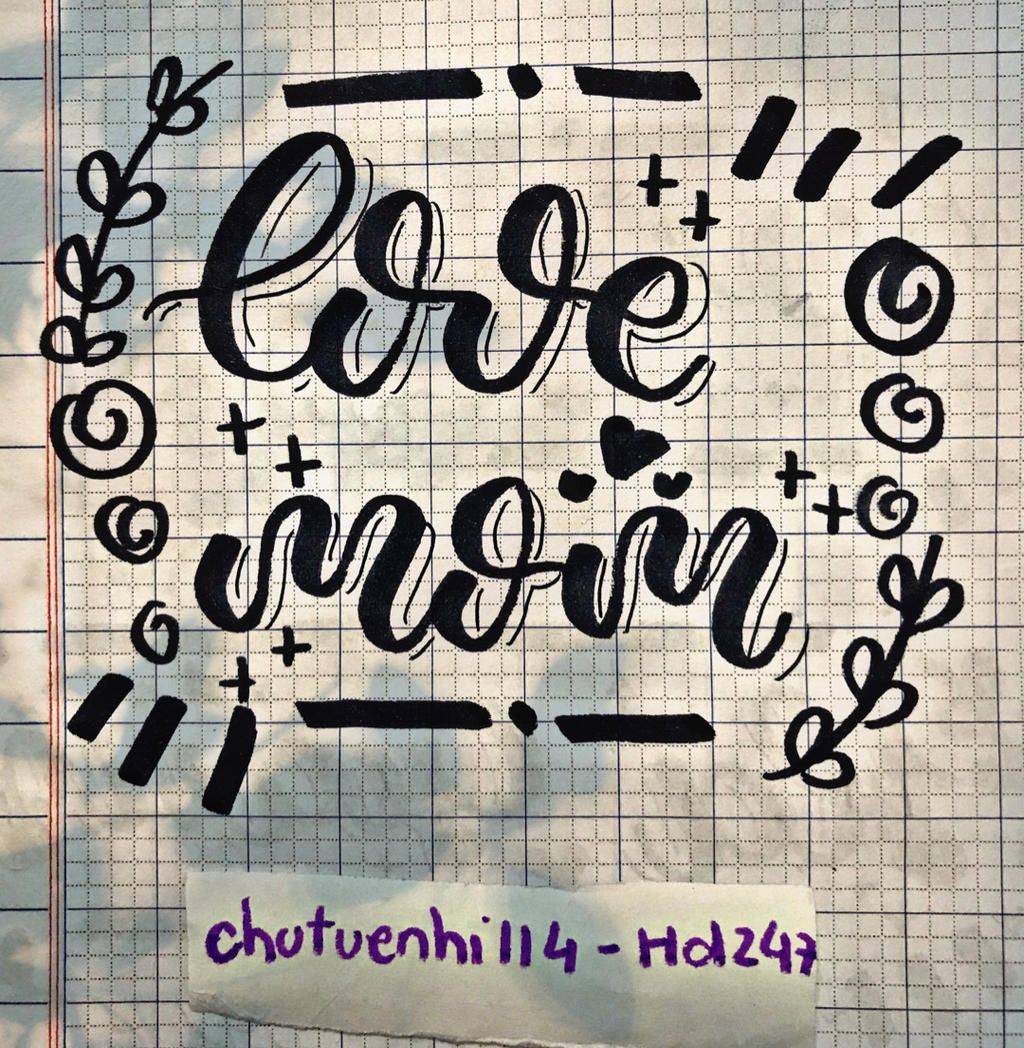 love
mom
chutuenhi114 - Hd247